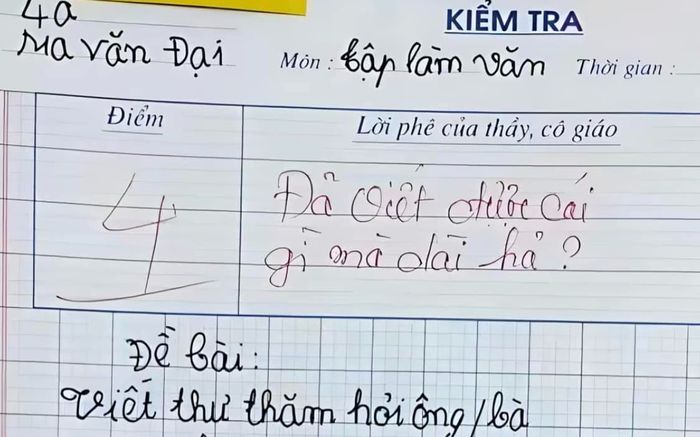 4a
Ma văn Đại
KIỂM TRA
Môn : tập làm văn Thời gian :
Điểm
Lời phê của thầy, cô giáo
4
Đã viết được cái
gì mà dài hả ?
Đề bài:
viết thư thăm hỏi ông/bà